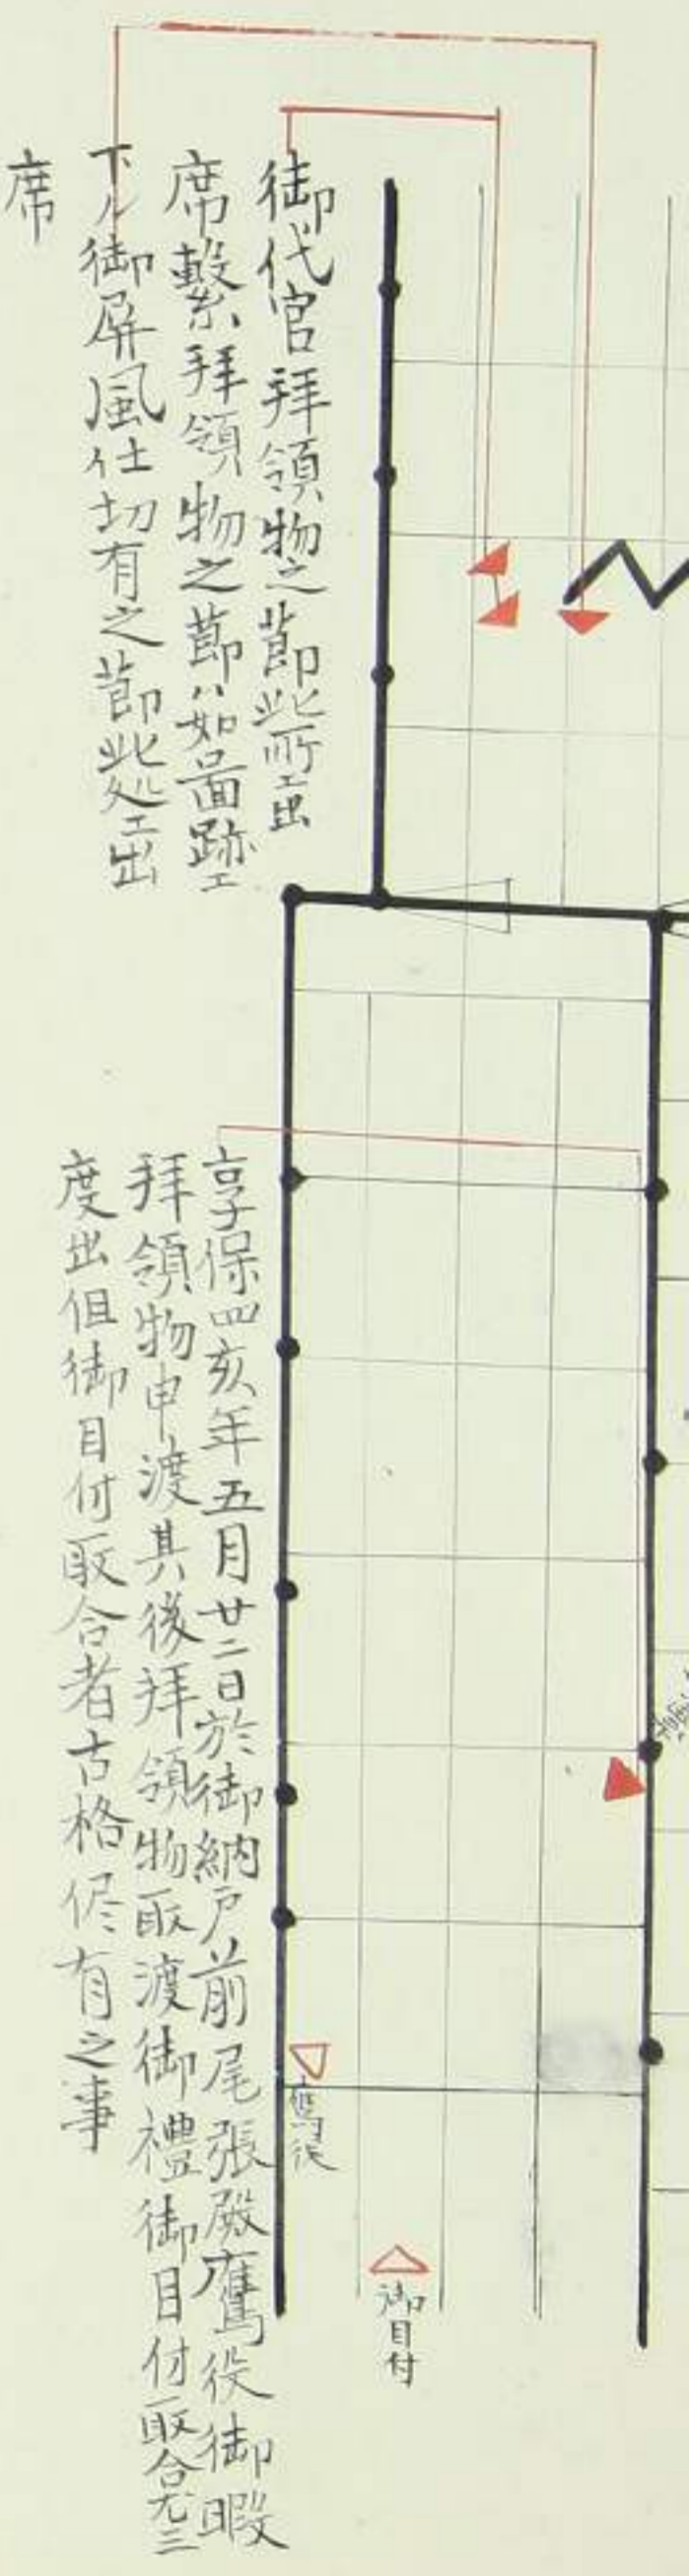 御代官拝領物之節此所エ出
席繋拝領物之節ハ如畫跡エ
下ル御屏風仕切有之節此処エ出
席
享保四亥年五月廿二日於御納戸前尾張殿鷹役御暇
拝領物申渡其後拝領物取渡御禮御目付取合尤三
度出但御目付取合者古格侭有之事
鷹役
御目付